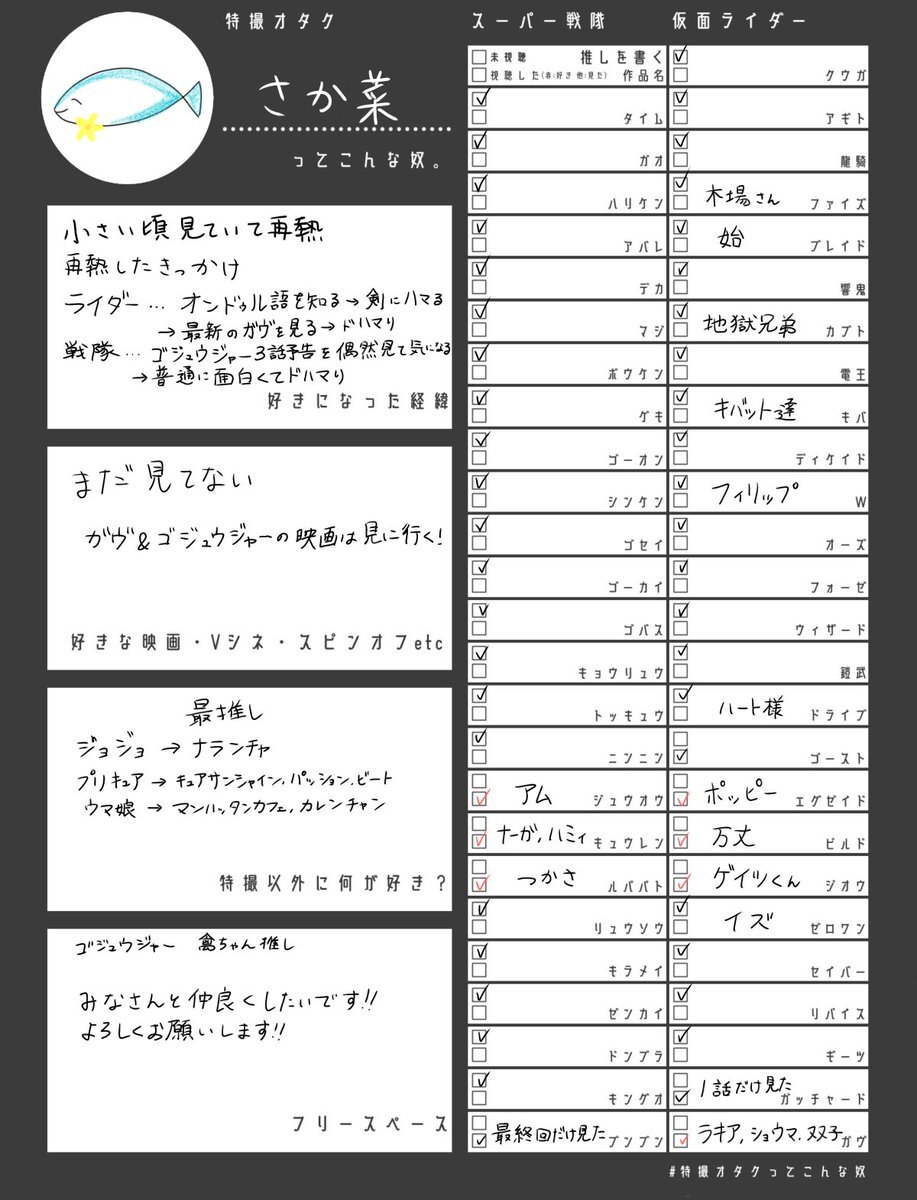 特撮オタク
さか菜
ってこんな奴。
小さい頃見ていて再熱
再熱したきっかけ
ライダー… オンドゥル語を知る→剣にハマる
→最新のガヴを見る→ドハマり
戦隊… ゴジュウジャー3話予告を偶然見て気になる
→普通に面白くてドハマり
好きになった経緯
まだ見てない
ガヴ&ゴジュウジャーの映画は見に行く!
好きな映画・Vシネ・スピンオフetc
最推し
ジョジョ → ナランチャ
プリキュア → キュアサンシャイン, パッション, ビート
ウマ娘 → マンハッタンカフェ, カレンチャン
特撮以外に何が好き?
ゴジュウジャー 禽ちゃん推し
みなさんと仲良くしたいです!!
よろしくお願いします!!
フリースペース
スーパー戦隊
未視聴 推しを書く
視聴した(赤:好き 他:見た) 作品名
タイム
ガオ
ハリケン
アバレ
デカ
マジ
ボウケン
ゲキ
ゴーオン
シンケン
ゴセイ
ゴーカイ
ゴバス
キョウリュウ
トッキュウ
ニンニン
アム ジュウオウ
ナーガ, ハミィ キュウレン
つかさ ルパパト
リュウソウ
キラメイ
ゼンカイ
ドンブラ
キングオ
最終回だけ見た ブンブン
仮面ライダー
クウガ
アギト
龍騎
木場さん ファイズ
始 ブレイド
響鬼
地獄兄弟 カブト
電王
キバット達 キバ
ディケイド
フィリップ W
オーズ
フォーゼ
ウィザード
鎧武
ハート様 ドライブ
ゴースト
ポッピー エグゼイド
万丈 ビルド
ゲイツくん ジオウ
イズ ゼロワン
セイバー
リバイス
ギーツ
1話だけ見た ガッチャード
ラキア, ショウマ, 双子 ガヴ
#特撮オタクってこんな奴